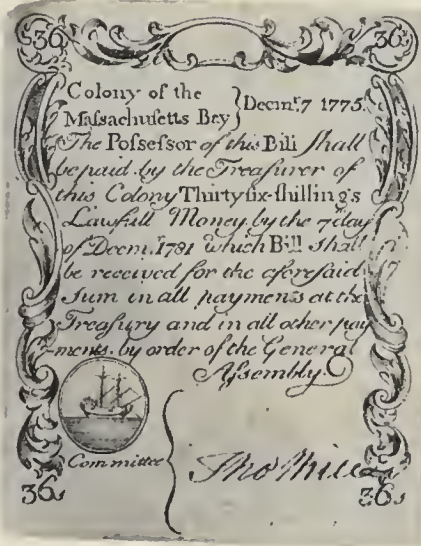 36 36
Colony of the
Maſsachusetts Bey } Decmr. 7 1775.
The Poſseſsor of this Bill ſhall
be paid by the Treaſurer of
this Colony Thirty six-ſhillings
Lawfull Money by the 7 day
of Decm. 1781 which Bill ſhall
be received for the aforeſaid
ſum in all payments at the
Treaſury and in all other pay
-ments. by order of the General
Aſsembly.
Committee
36s 36s